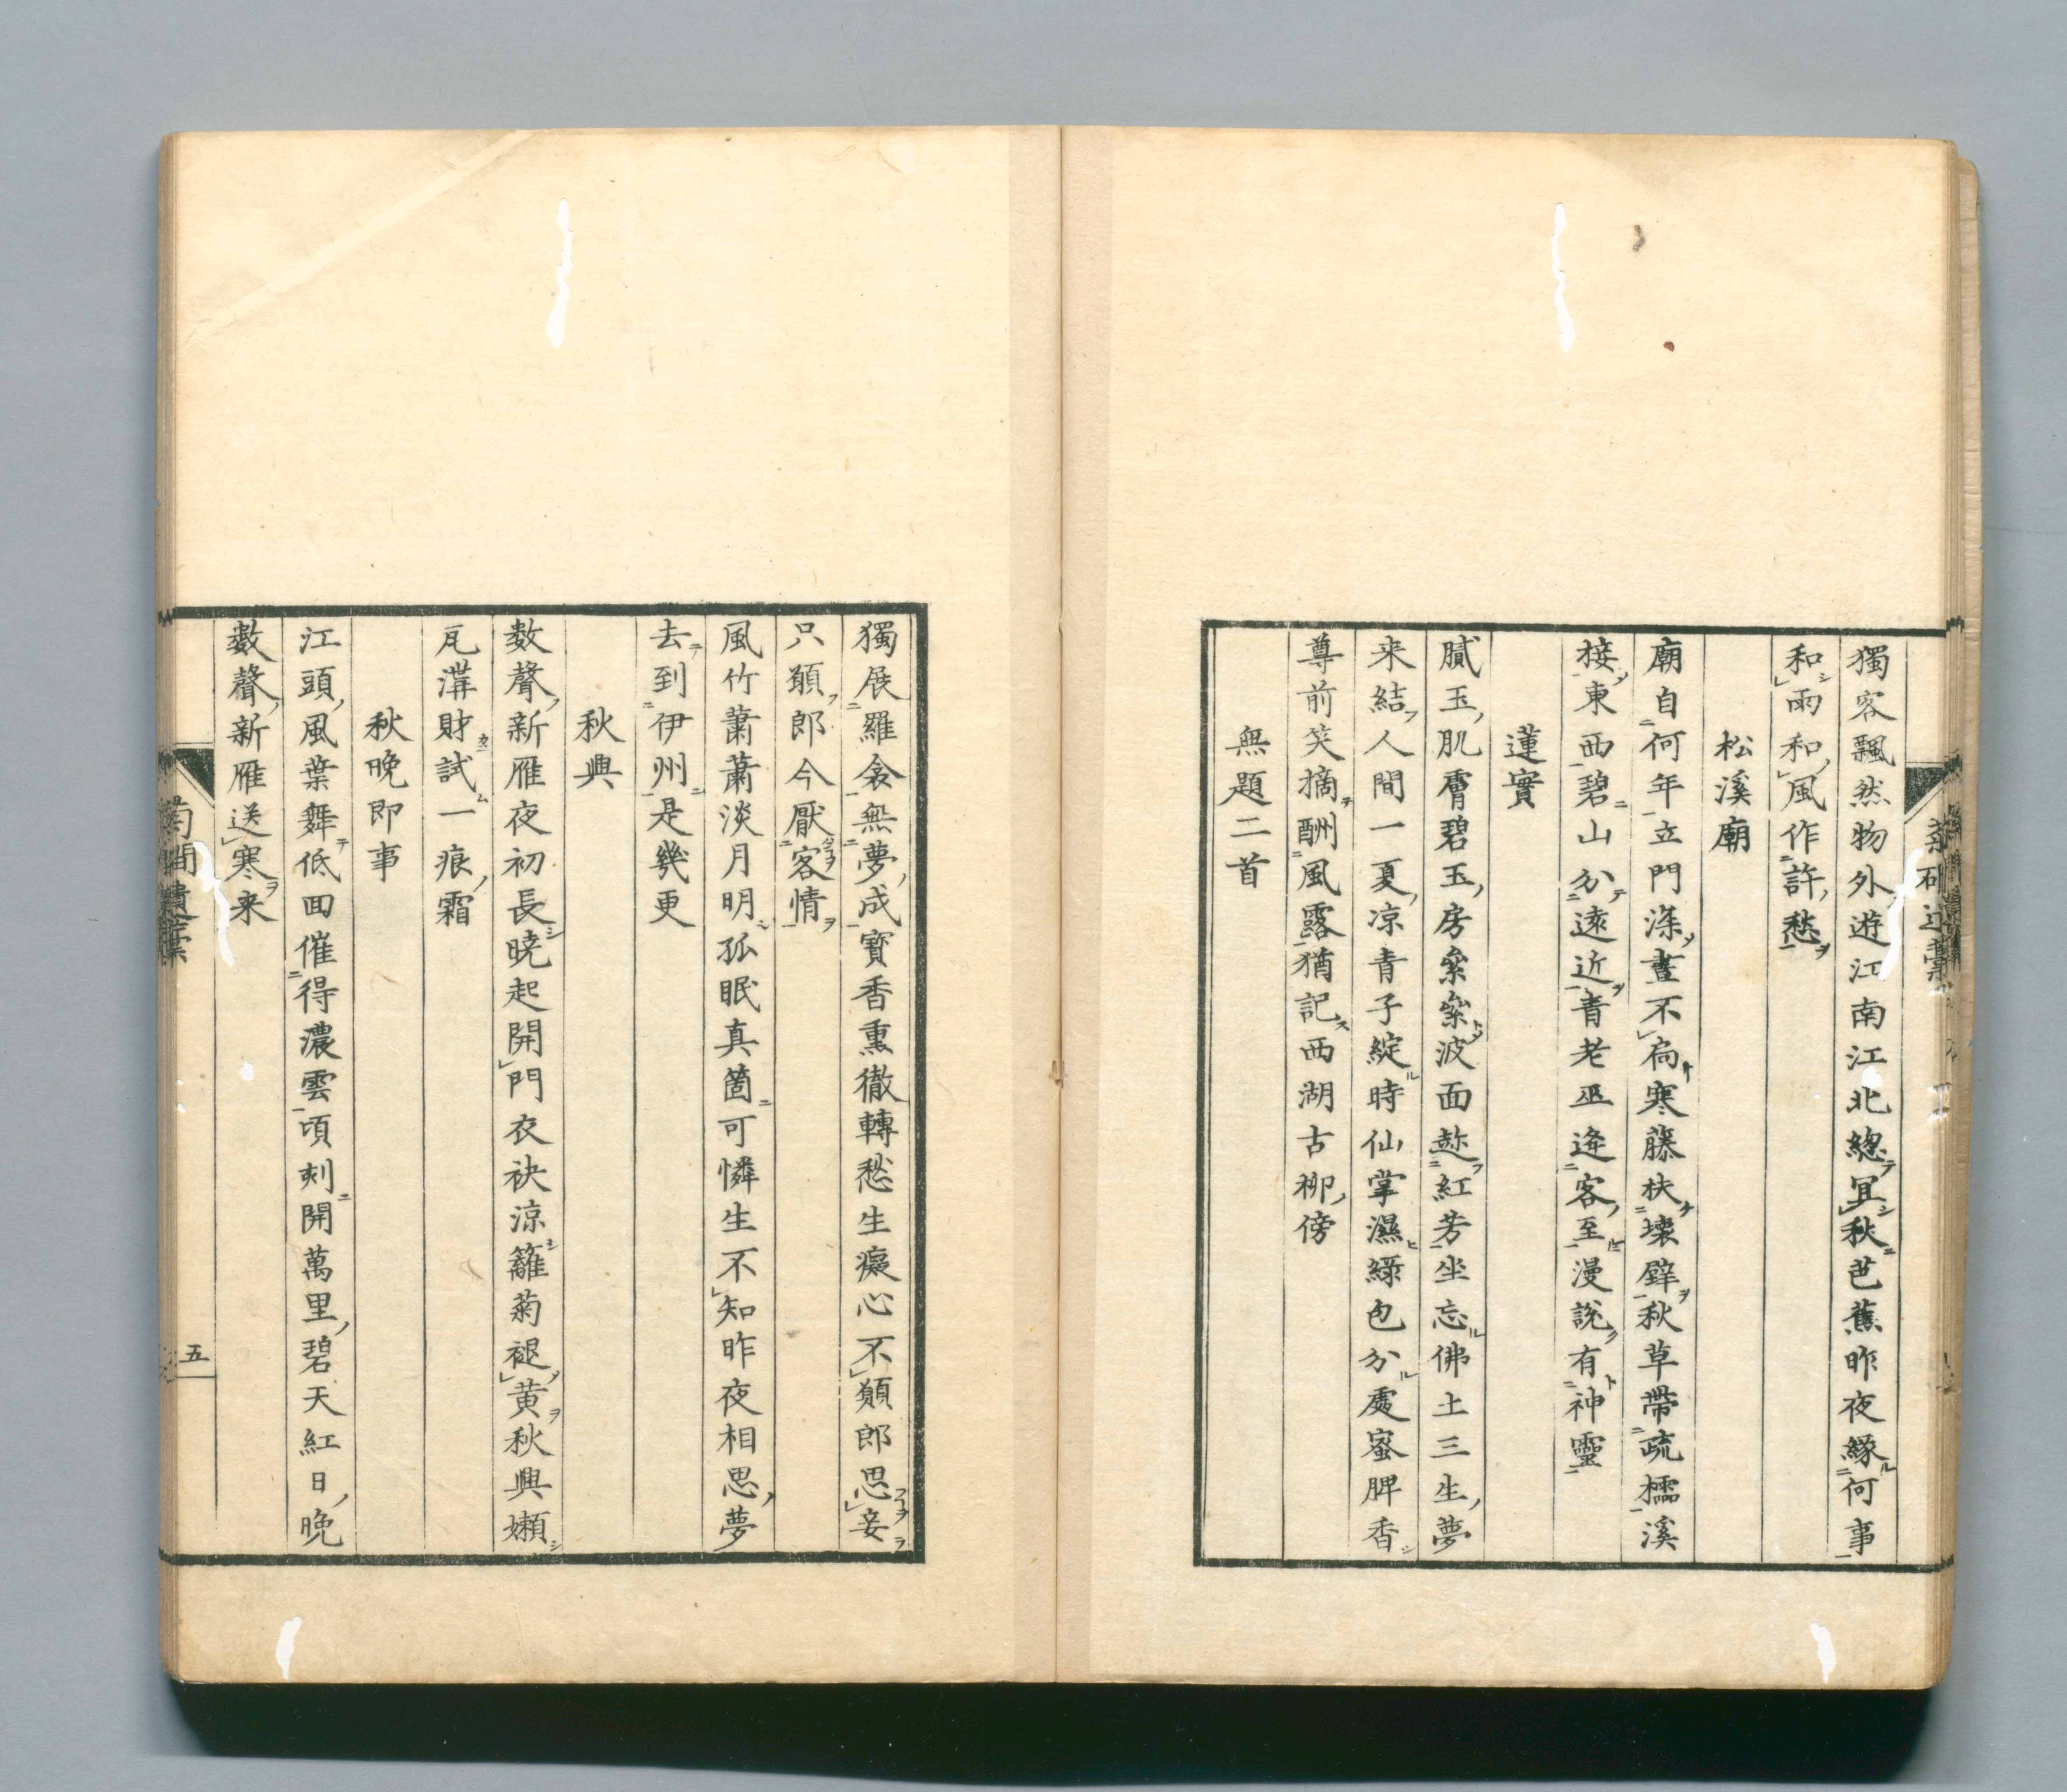 獨客飄然物外遊江南江北總冝秋芭蕉昨夜緣何事
和雨和風作許愁
松溪廟
廟自何年立門深晝不扃寒藤扶壞壁秋草帶疏櫺溪
接東西碧山分遠近青老巫逢客至漫說有神靈
蓮實
膩玉肌膚碧玉房纍纍波面趂紅芳坐忘佛土三生夢
来結人間一夏凉青子綻時仙掌濕綠包分處蜜脾香
尊前笑摘酬風露猶記西湖古柳傍
無題二首
獨展羅衾無夢成寳香熏徹轉愁生癡心不願郎思妾
只願郎今厭客情
風竹蕭蕭淡月明孤眠真箇可憐生不知昨夜相思夢
去到伊州是幾更
秋興
数聲新雁夜初長曉起開門衣袂凉籬菊褪黄秋興嬾
瓦溝財試一痕霜
秋晚即事
江頭風葉舞低回催得濃雲頃刻開萬里碧天紅日晚
數聲新雁送寒来
五